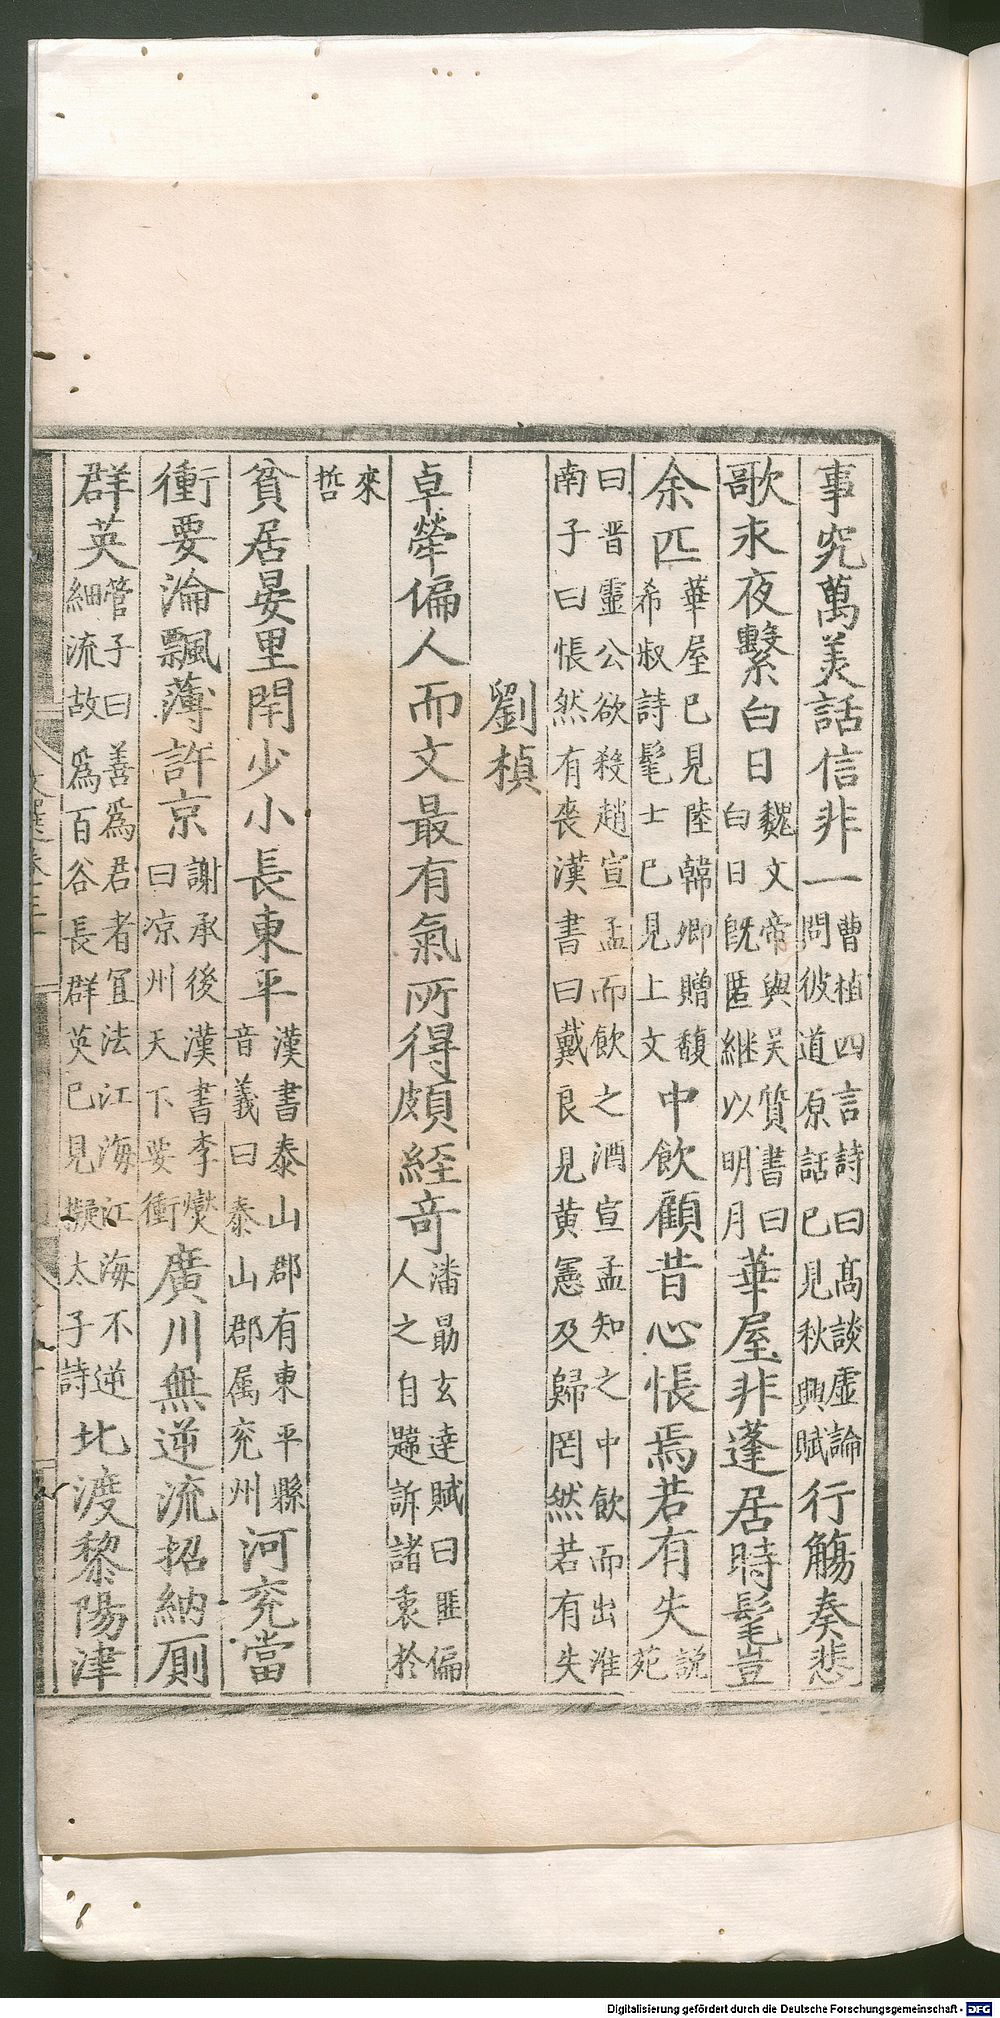 事究萬美話信非一曹植四言詩曰髙談虛論問彼道原話已見秋興賦行觴奏悲
歌永夜繫白日魏文帝與吴質書曰白日旣匿継以明月華屋非蓬居時髦豈
余匹華屋已見陸韓卿贈馥希叔詩髦士已見上文中飲顧昔心悵焉若有失説苑
曰晋靈公欲殺趙宣孟而飲之酒宣孟知之中飲而出淮南子曰悵然有喪漢書曰戴良見黄憲及歸罔然若有失
劉楨
卓犖偏人而文最有氣所得頗経竒潘勗玄達賦曰匪偏人之自韙訴諸衷扵
來哲
貧居晏里閈少小長東平漢書泰山郡有東平縣音義曰泰山郡属兖州河兖當
衝要淪飄薄許京謝承後漢書李爕曰凉州天下要衝廣川無逆流招納厠
群英管子曰善爲君者冝法江海江海不逆細流故爲百谷長群英已見擬太子詩北渡黎陽津
Digitalisierung gefördert durch die Deutsche Forschungsgemeinschaft - DFG